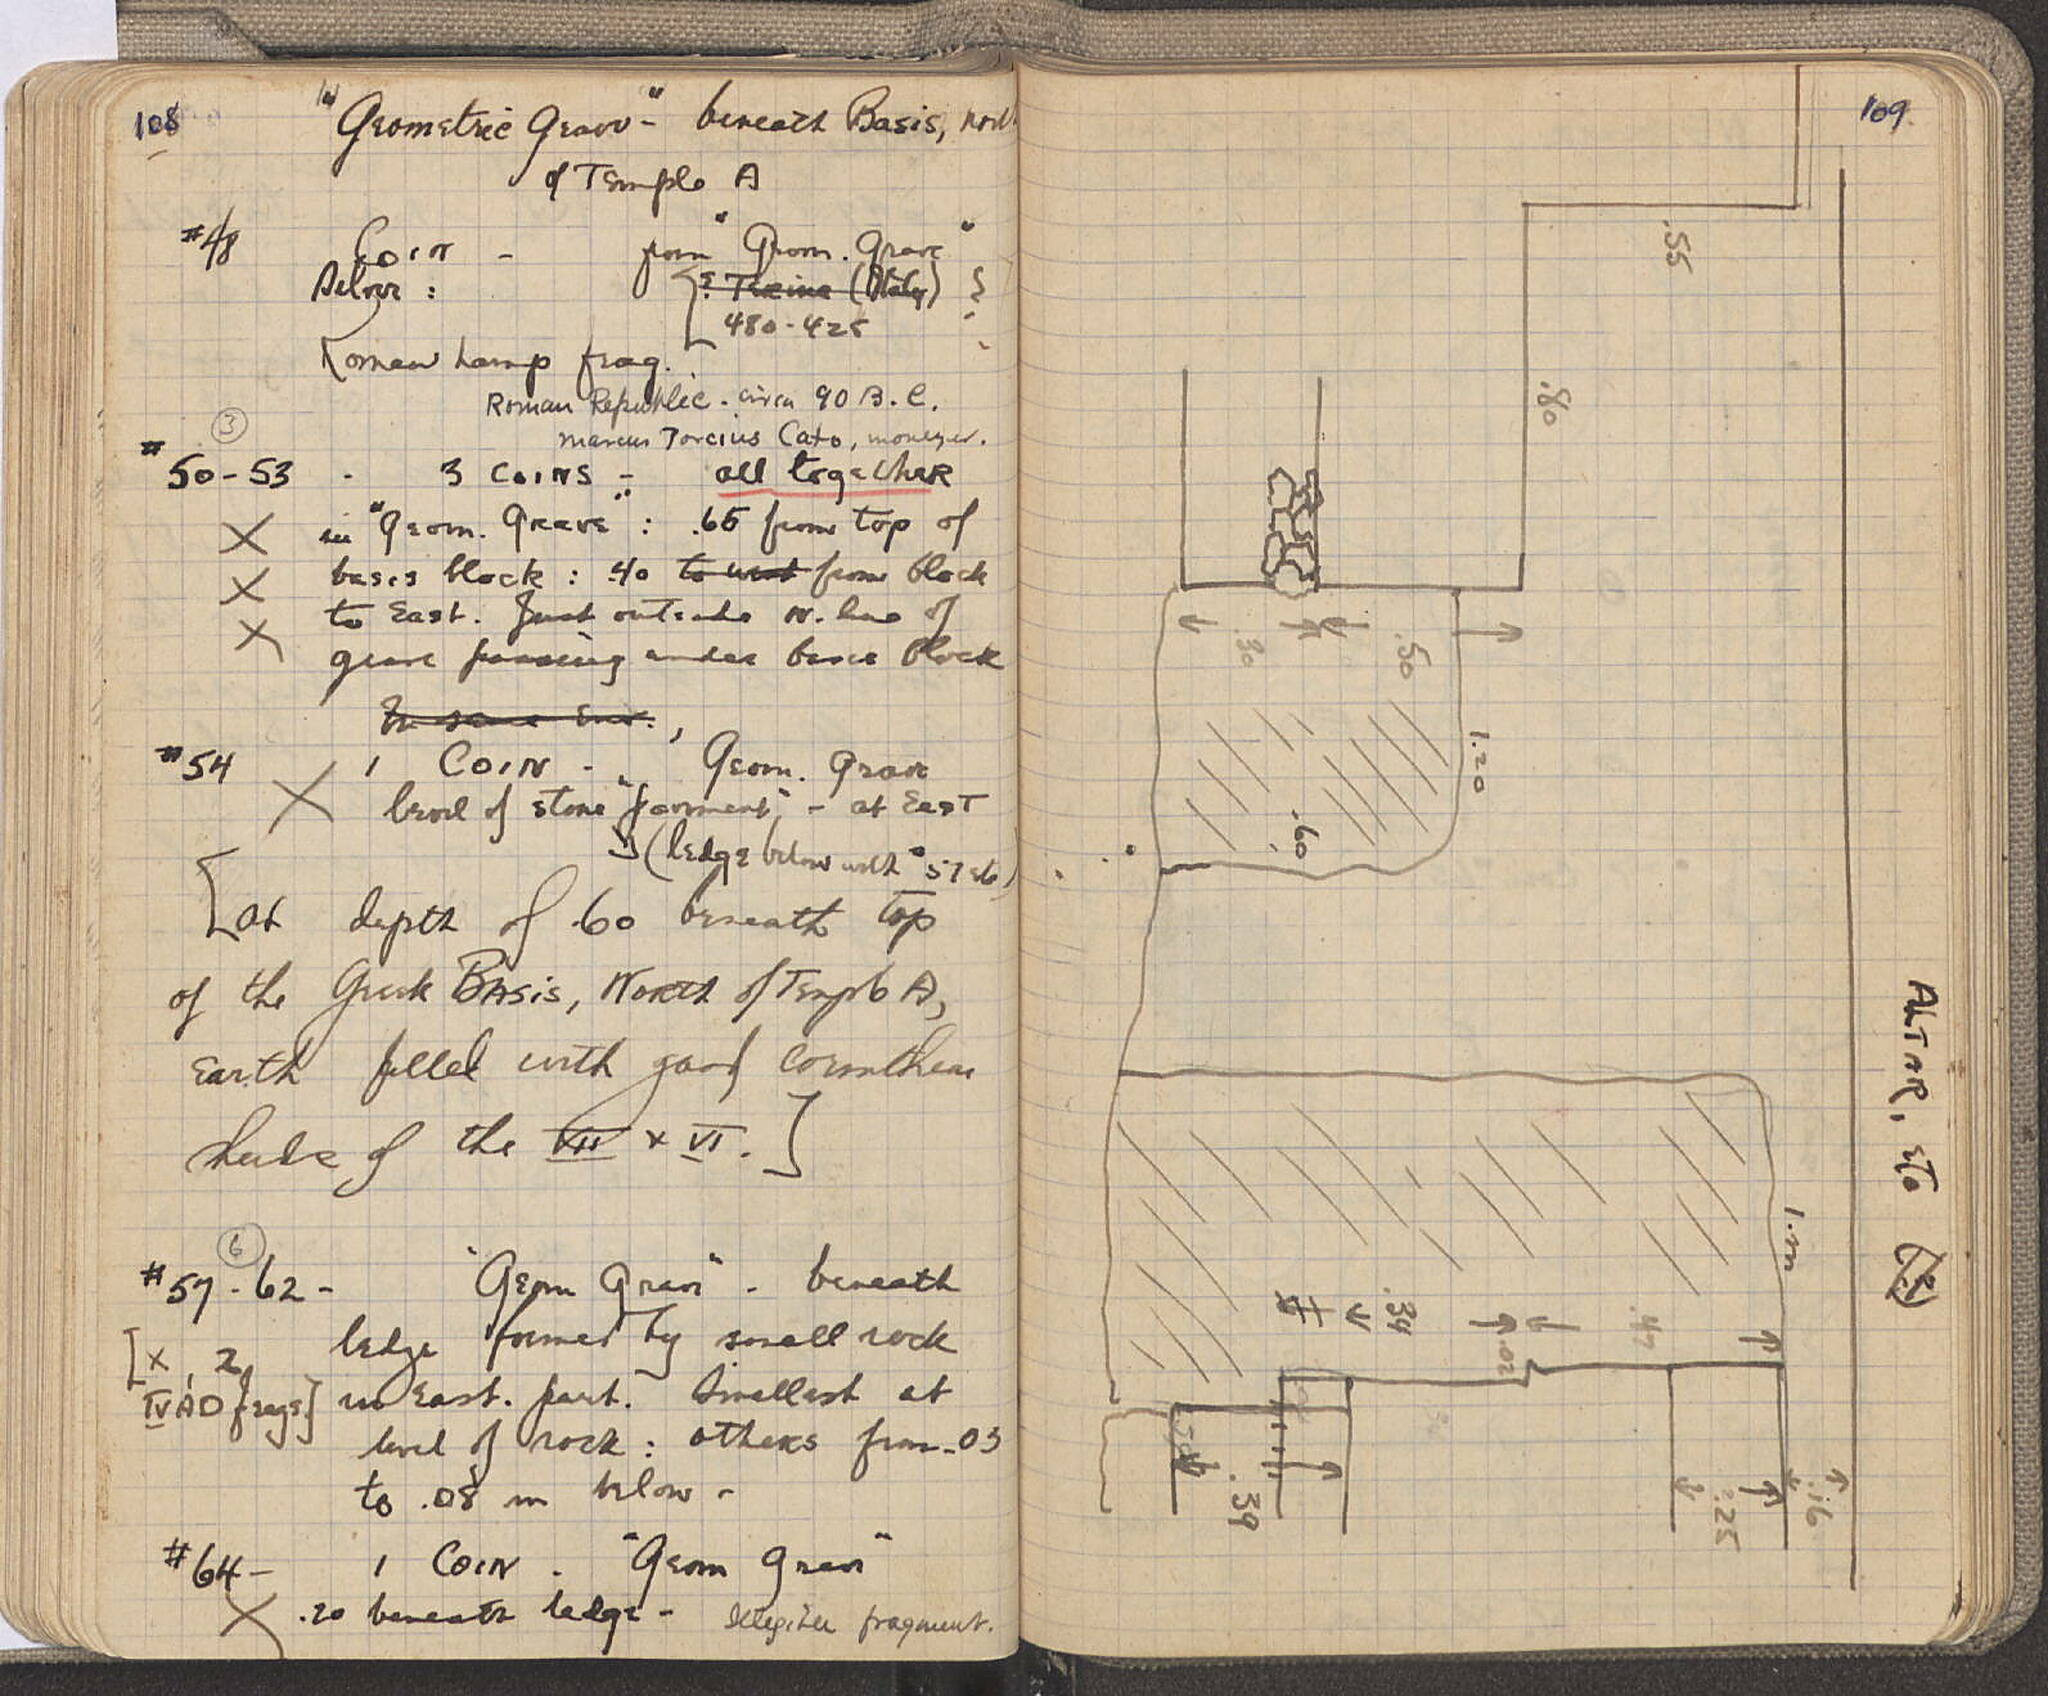 108
"Geometric Grave" beneath Basis, north
of Temple A
#48 Coin - from "Geom. Grave"
Silver : [? Terina (Italy) ?
480-425
Roman Lamp frag.
Roman Republic - circa 90 B.C.
Marcus Porcius Cato, moneyer.
③
#50-53 - 3 COINS - all together
X in "Geom. Grave" : .65 from top of
X basis block : .40 to west from block
X to East. Just outside N. line of
grave passing under basis block
In same Env.,
#54 1 COIN - Geom. Grave
X level of stone "pavement" - at East
(ledge below with #57 etc)
[at depth of .60 beneath top
of the Greek BASIS, North of Temple A,
Earth filled with good Corinthian
sherds of the VII + VI.]
⑥
#57-62 - "Geom Grave" - beneath
ledge formed by small rock
[X, 2,
IV AD frags.] in East. part. Smallest at
level of rock : others from .03
to .08 m below -
#64 - 1 COIN - "Geom Grave"
X .20 beneath ledge - Illegible fragment.
109
.55
.80
.30
.50
1.20
.60
ALTAR, etc (?)
1.m
.34
.47
.02
.39
.25
.16